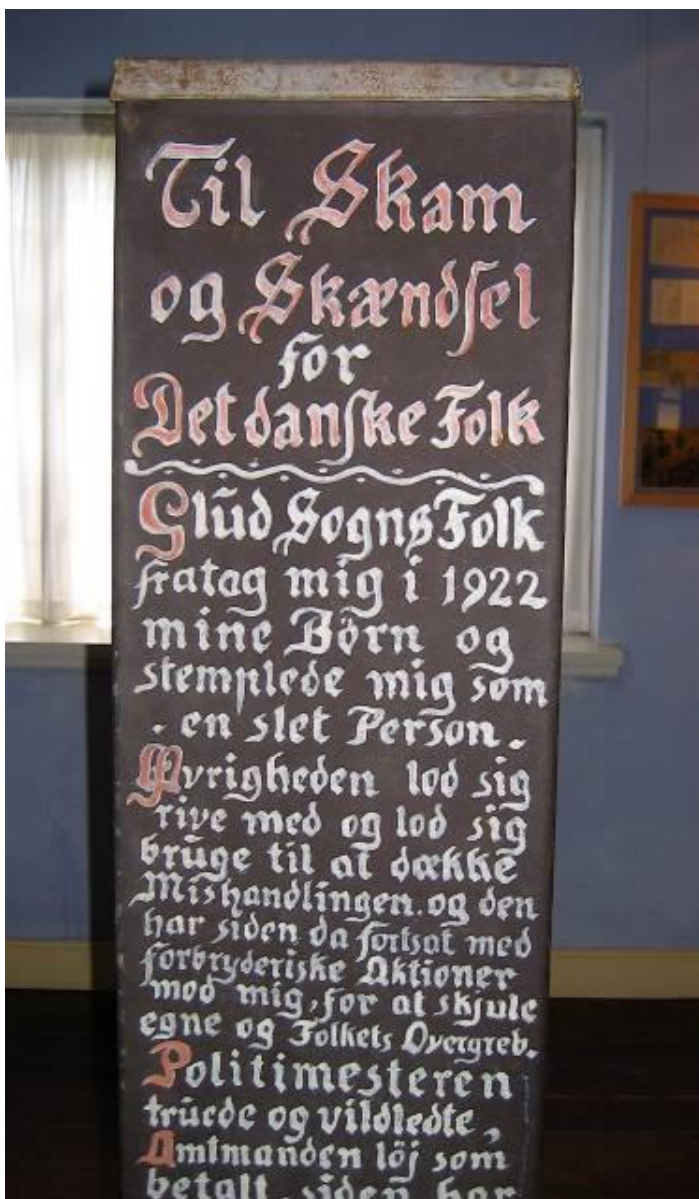 Til Skam
og Skændsel
for
Det danske Folk
Glud Sogns Folk
fratog mig i 1922
mine Börn og
stemplede mig som
en slet Person.
Øvrigheden lod sig
rive med og lod sig
bruge til at dække
Mishandlingen. og den
har siden da fortsat med
forbryderiske Aktioner
mod mig, for at skjule
egne og Folkets Overgreb.
Politimesteren
truede og vildledte,
Amtmanden löj som
betalt, siden har